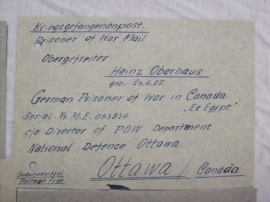 Kriegsgefangenenpost.
Prisoner of War Mail
Obergefreiter
Heinz Oberhaus
geb. 23.6.22
German Prisoner of War in Canada
"Ex Egypt"
Serial-Nr. M.E. 053834
c/o Director of POW Department
National Defence Ottawa
Ottawa / Canada
Gebührenfrei
Postage Free